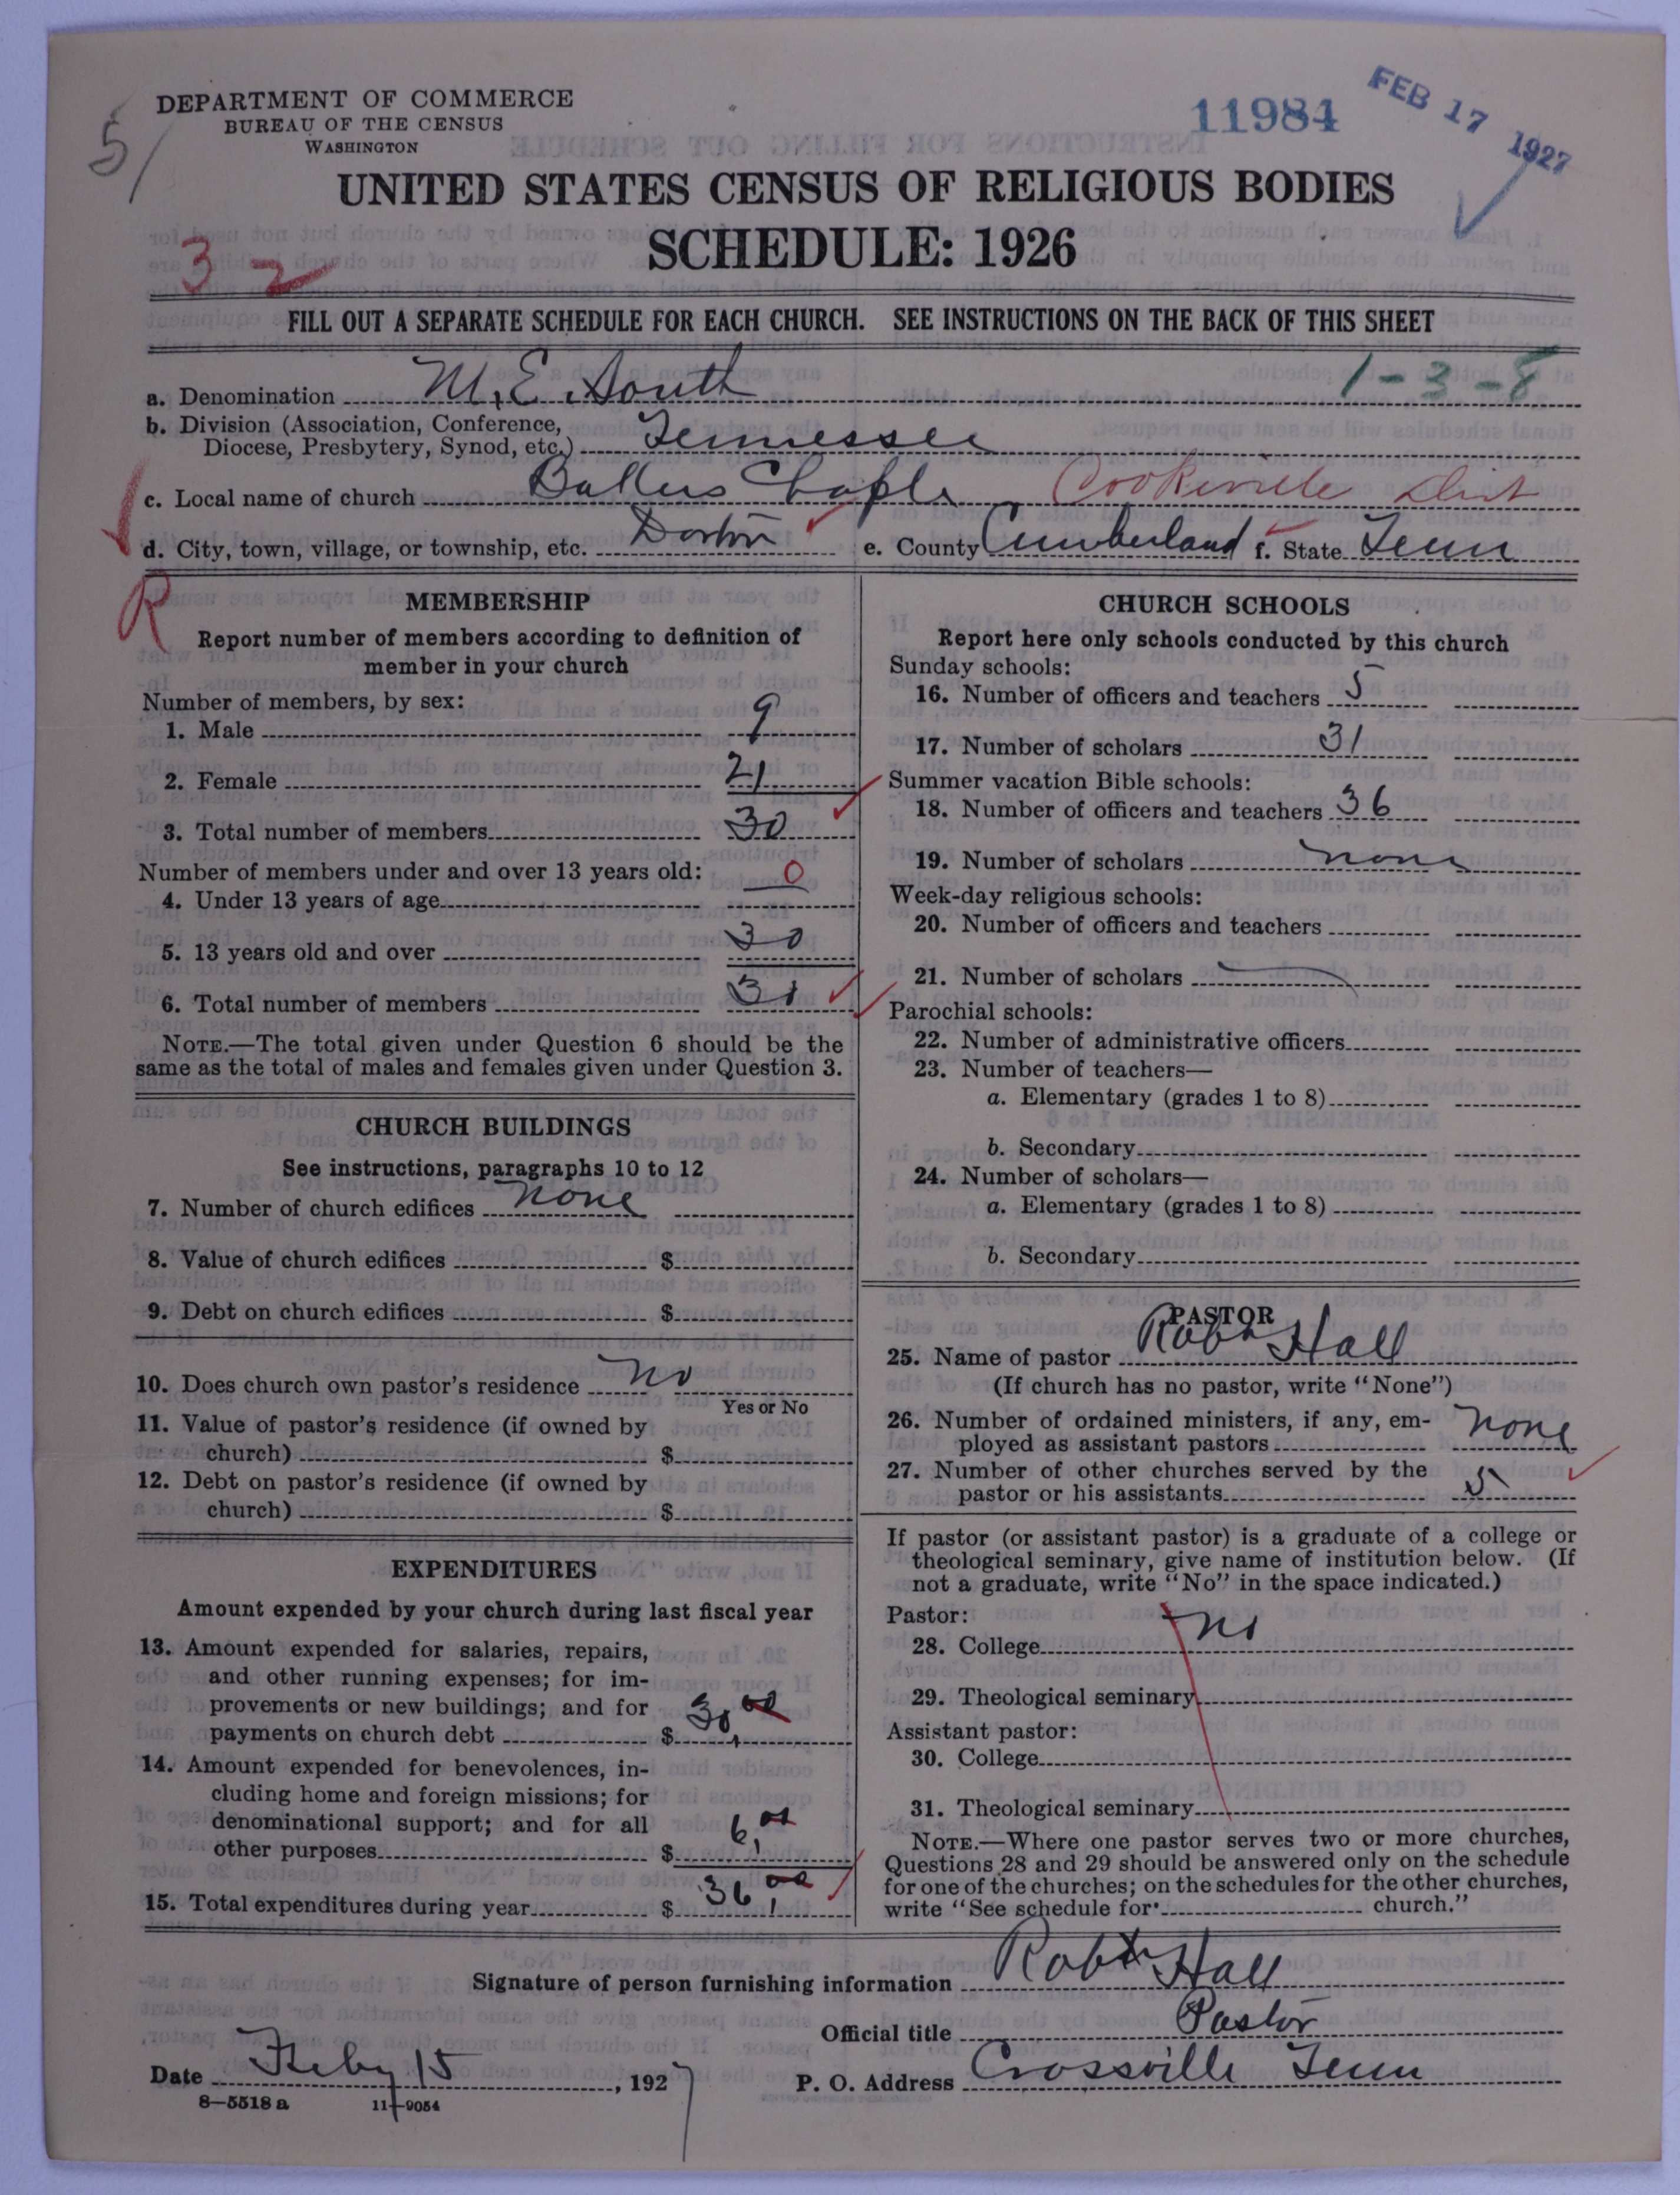 DEPARTMENT OF COMMERCE
BUREAU OF THE CENSUS
WASHINGTON
5/
11984
FEB 17 1927
UNITED STATES CENSUS OF RELIGIOUS BODIES
SCHEDULE: 1926
3 2
FILL OUT A SEPARATE SCHEDULE FOR EACH CHURCH. SEE INSTRUCTIONS ON THE BACK OF THIS SHEET
1-3-8
a. Denomination M.E. South
b. Division (Association, Conference,
Diocese, Presbytery, Synod, etc.) Tennessee
c. Local name of church Chaple Cookeville Dist
d. City, town, village, or township, etc. Dorton e. County Cumberland f. State Tenn
R
MEMBERSHIP
Report number of members according to definition of
member in your church
Number of members, by sex:
1. Male 9
2. Female 21
3. Total number of members 30
Number of members under and over 13 years old:
4. Under 13 years of age 0
5. 13 years old and over 30
6. Total number of members
NOTE.—The total given under Question 6 should be the
same as the total of males and females given under Question 3.
CHURCH BUILDINGS
See instructions, paragraphs 10 to 12
7. Number of church edifices none
8. Value of church edifices $
9. Debt on church edifices $
10. Does church own pastor's residence no
Yes or No
11. Value of pastor's residence (if owned by
church) $
12. Debt on pastor's residence (if owned by
church) $
EXPENDITURES
Amount expended by your church during last fiscal year
13. Amount expended for salaries, repairs,
and other running expenses; for im-
provements or new buildings; and for
payments on church debt $ 30,00
14. Amount expended for benevolences, in-
cluding home and foreign missions; for
denominational support; and for all
other purposes $ 6,00
15. Total expenditures during year $ 36,00
CHURCH SCHOOLS
Report here only schools conducted by this church
Sunday schools:
16. Number of officers and teachers 5
17. Number of scholars 31
Summer vacation Bible schools:
18. Number of officers and teachers 36
19. Number of scholars none
Week-day religious schools:
20. Number of officers and teachers
21. Number of scholars
Parochial schools:
22. Number of administrative officers
23. Number of teachers—
a. Elementary (grades 1 to 8)
b. Secondary
24. Number of scholars—
a. Elementary (grades 1 to 8)
b. Secondary
PASTOR
25. Name of pastor Robt Hall
(If church has no pastor, write "None")
26. Number of ordained ministers, if any, em-
ployed as assistant pastors none
27. Number of other churches served by the
pastor or his assistants 5
If pastor (or assistant pastor) is a graduate of a college or
theological seminary, give name of institution below. (If
not a graduate, write "No" in the space indicated.)
Pastor:
28. College no
29. Theological seminary
Assistant pastor:
30. College
31. Theological seminary
NOTE.—Where one pastor serves two or more churches,
Questions 28 and 29 should be answered only on the schedule
for one of the churches; on the schedules for the other churches,
write "See schedule for church."
Signature of person furnishing information Robt Hall
Official title Pastor
Date Feby 15, 1927 P. O. Address Crossville Tenn
8—5518a 11—9054